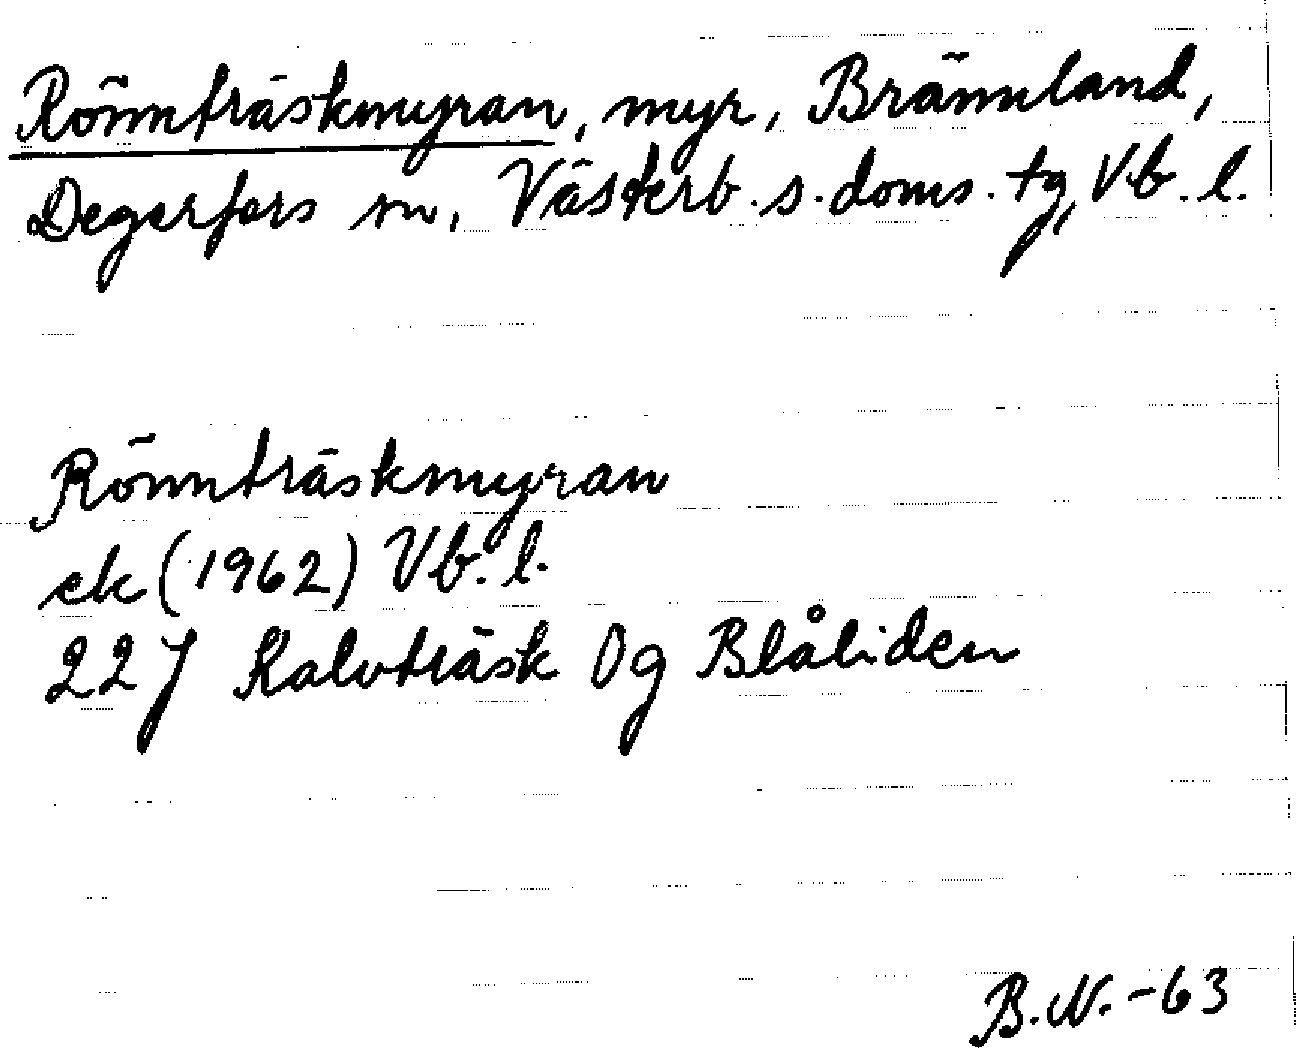 Rönnträskmyran, myr, Brännland,
Degerfors sn, Västerb. s. doms. tg, Vb. l.
Rönnträskmyran
ek (1962) Vb. l.
22 J Kalvträsk 0g Blåliden
B.N. -63